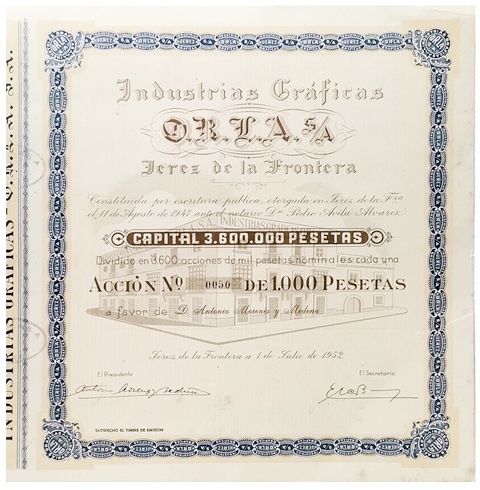 Industrias Gráficas
O.R.L.A. S/A
Jerez de la Frontera
Constituida por escritura publica, otorgada en Jerez de la Fra
el 11 de Agosto de 1947 ante el notario Dn Pedro Avila Alvarez
CAPITAL 3.600.000 PESETAS
Dividido en 3.600 acciones de mil pesetas nominales cada una
ACCIÓN Nº 0050 DE 1.000 PESETAS
a favor de D. Antonio Moreno y Medina
Jerez de la Frontera a 1 de Julio de 1952
El Presidente
El Secretario
SATISFECHO EL TIMBRE DE EMISION
INDUSTRIAS GRÁFICAS - O.R.L.A. S.A.